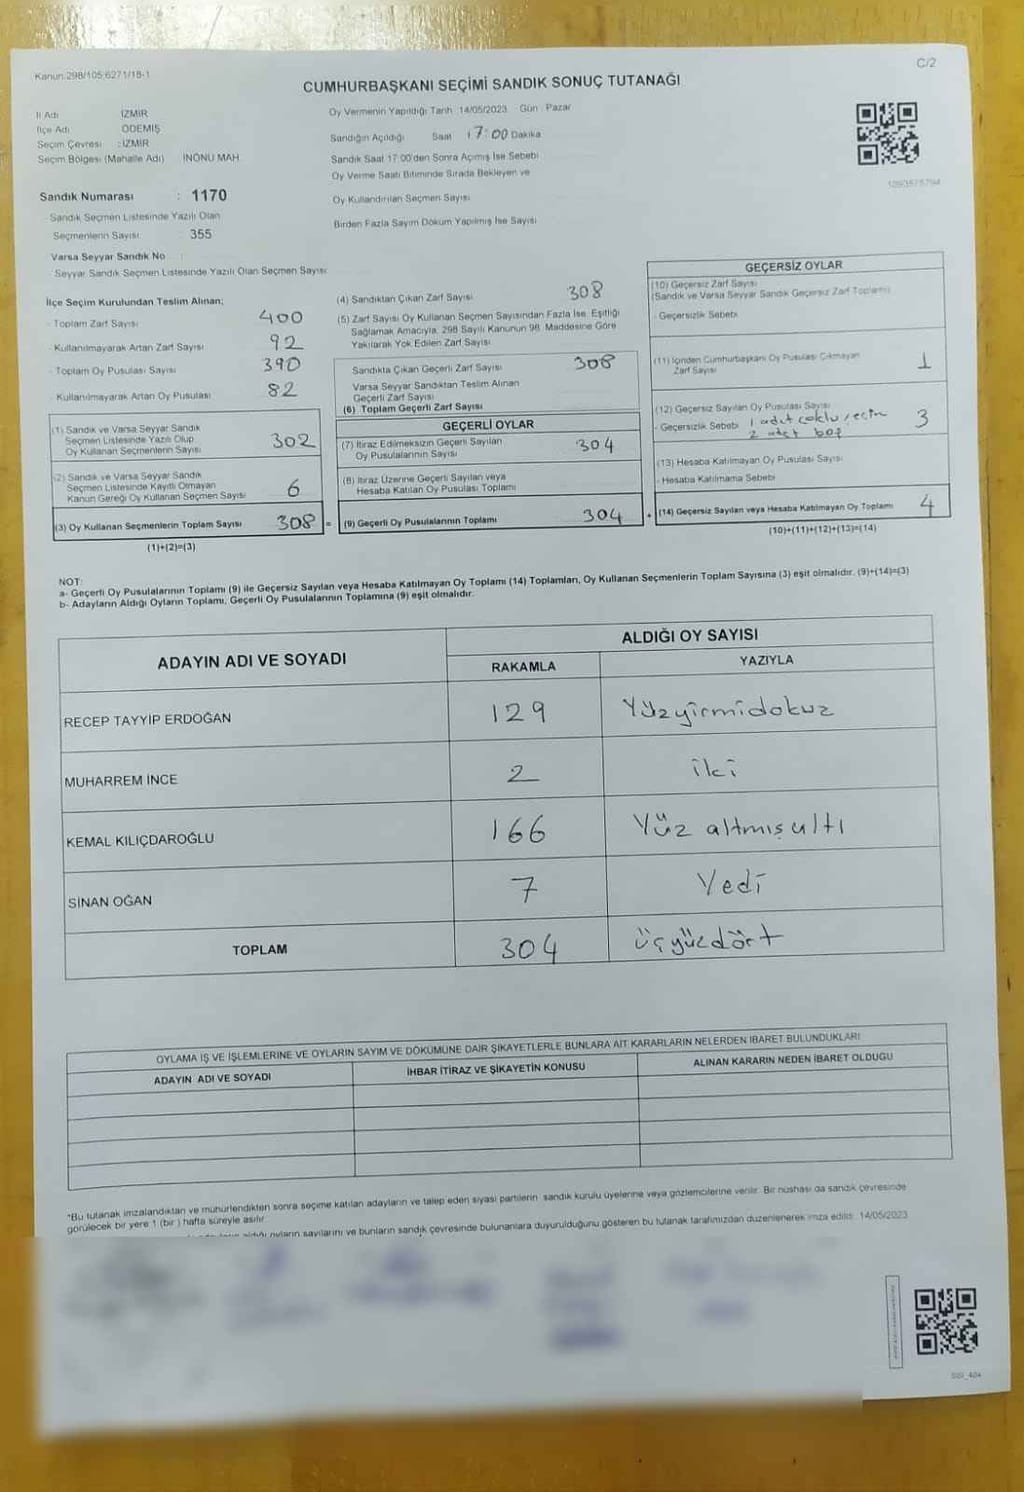 Kanun:298/105;6271/18-1
C/2
CUMHURBAŞKANI SEÇİMİ SANDIK SONUÇ TUTANAĞI
İl Adı : İZMİR
İlçe Adı : ÖDEMİŞ
Seçim Çevresi : İZMİR
Seçim Bölgesi (Mahalle Adı) : İNÖNÜ MAH.
Sandık Numarası : 1170
- Sandık Seçmen Listesinde Yazılı Olan
Seçmenlerin Sayısı : 355
Varsa Seyyar Sandık No :
- Seyyar Sandık Seçmen Listesinde Yazılı Olan Seçmen Sayısı
Oy Vermenin Yapıldığı Tarih : 14/05/2023 Gün : Pazar
Sandığın Açıldığı Saat 17:00 Dakika
Sandık Saat 17:00'den Sonra Açılmış İse Sebebi
Oy Verme Saati Bitiminde Sırada Bekleyen ve
Oy Kullandırılan Seçmen Sayısı
Birden Fazla Sayım Döküm Yapılmış İse Sayısı
İlçe Seçim Kurulundan Teslim Alınan;
- Toplam Zarf Sayısı 400
- Kullanılmayarak Artan Zarf Sayısı 92
- Toplam Oy Pusulası Sayısı 390
- Kullanılmayarak Artan Oy Pusulası 82
(1) Sandık ve Varsa Seyyar Sandık
Seçmen Listesinde Yazılı Olup
Oy Kullanan Seçmenlerin Sayısı 302
(2) Sandık ve Varsa Seyyar Sandık
Seçmen Listesinde Kayıtlı Olmayan
Kanun Gereği Oy Kullanan Seçmen Sayısı 6
(3) Oy Kullanan Seçmenlerin Toplam Sayısı 308 =
(1)+(2)=(3)
(4) Sandıktan Çıkan Zarf Sayısı 308
(5) Zarf Sayısı Oy Kullanan Seçmen Sayısından Fazla İse, Eşitliği
Sağlamak Amacıyla, 298 Sayılı Kanunun 98. Maddesine Göre
Yakılarak Yok Edilen Zarf Sayısı
Sandıkta Çıkan Geçerli Zarf Sayısı 308
Varsa Seyyar Sandıktan Teslim Alınan
Geçerli Zarf Sayısı
(6) Toplam Geçerli Zarf Sayısı
GEÇERLİ OYLAR
(7) İtiraz Edilmeksizin Geçerli Sayılan
Oy Pusulalarının Sayısı 304
(8) İtiraz Üzerine Geçerli Sayılan veya
Hesaba Katılan Oy Pusulası Toplamı
(9) Geçerli Oy Pusulalarının Toplamı 304 +
GEÇERSİZ OYLAR
(10) Geçersiz Zarf Sayısı
(Sandık ve Varsa Seyyar Sandık Geçersiz Zarf Toplamı)
- Geçersizlik Sebebi
(11) İçinden Cumhurbaşkanı Oy Pusulası Çıkmayan
Zarf Sayısı 1
(12) Geçersiz Sayılan Oy Pusulası Sayısı 3
- Geçersizlik Sebebi 1 adet çoklu seçim
2 adet boş
(13) Hesaba Katılmayan Oy Pusulası Sayısı
- Hesaba Katılmama Sebebi
(14) Geçersiz Sayılan veya Hesaba Katılmayan Oy Toplamı 4
(10)+(11)+(12)+(13)=(14)
NOT:
a- Geçerli Oy Pusulalarının Toplamı (9) ile Geçersiz Sayılan veya Hesaba Katılmayan Oy Toplamı (14) Toplamları, Oy Kullanan Seçmenlerin Toplam Sayısına (3) eşit olmalıdır. (9)+(14)=(3)
b- Adayların Aldığı Oyların Toplamı, Geçerli Oy Pusulalarının Toplamına (9) eşit olmalıdır.
ADAYIN ADI VE SOYADI ALDIĞI OY SAYISI
RAKAMLA YAZIYLA
RECEP TAYYİP ERDOĞAN 129 Yüzyirmidokuz
MUHARREM İNCE 2 iki
KEMAL KILIÇDAROĞLU 166 Yüz altmışaltı
SİNAN OĞAN 7 Yedi
TOPLAM 304 üçyüzdört
OYLAMA İŞ VE İŞLEMLERİNE VE OYLARIN SAYIM VE DÖKÜMÜNE DAİR ŞİKAYETLERLE BUNLARA AİT KARARLARIN NELERDEN İBARET BULUNDUKLARI
ADAYIN ADI VE SOYADI İHBAR İTİRAZ VE ŞİKAYETİN KONUSU ALINAN KARARIN NEDEN İBARET OLDUĞU
*Bu tutanak imzalandıktan ve mühürlendikten sonra seçime katılan adayların ve talep eden siyasi partilerin sandık kurulu üyelerine veya gözlemcilerine verilir. Bir nüshası da sandık çevresinde
görülecek bir yere 1 (bir ) hafta süreyle asılır.
aldığı oyların sayılarını ve bunların sandık çevresinde bulunanlara duyurulduğunu gösteren bu tutanak tarafımızdan düzenlenerek imza edildi. 14/05/2023